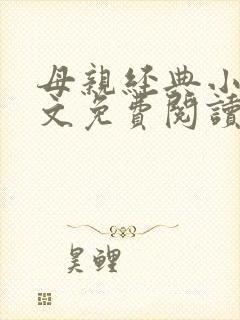 母親經典小
文免費閱讀
昊鯉